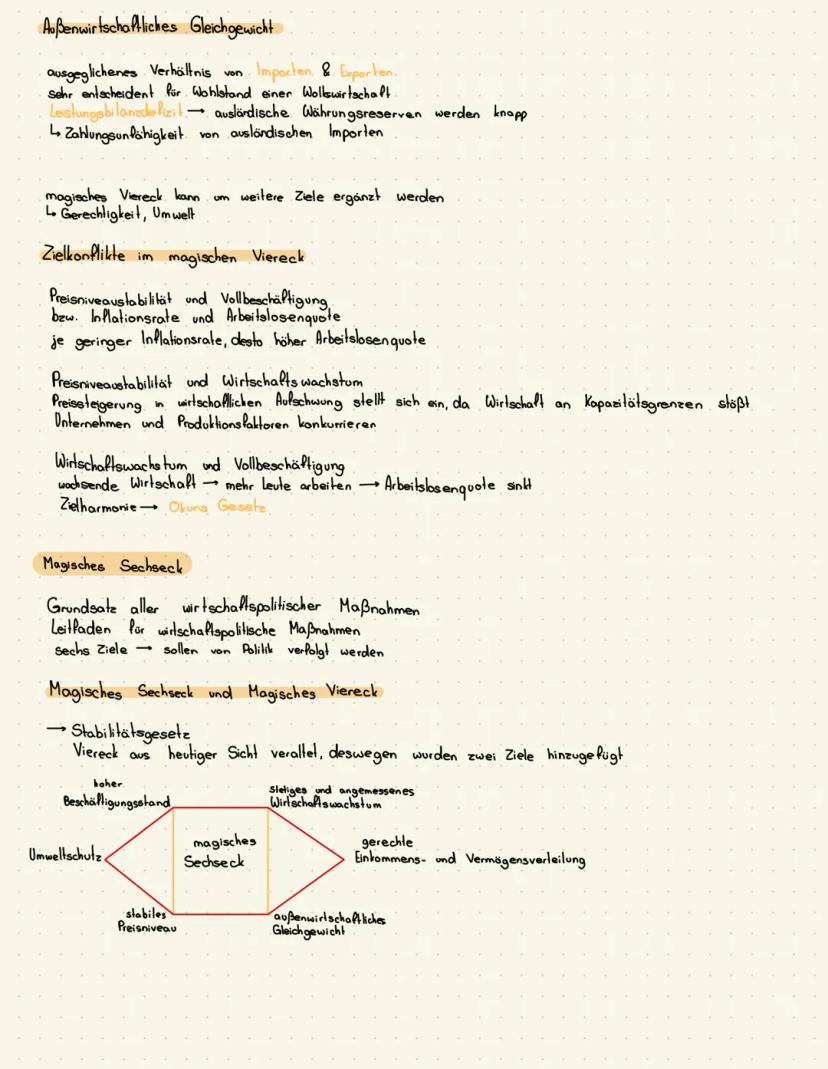 Außenwirtschaftliches Gleichgewicht
ausgeglichenes Verhältnis von Importen & Exporten
sehr entscheident für Wohlstand einer Wolkswirtschaft
Leistungsbilanzdefizit → auslördische Währungsreserven werden knapp
↳ Zahlungsunfähigkeit von ausländischen Importen
magisches Viereck kann um weitere Ziele ergänzt werden
↳ Gerechtigkeit, Umwelt
Zielkonflikte im magischen Viereck
Preisniveaustabilität und Vollbeschäftigung
bzw. Inflationsrate und Arbeitslosenquote
je geringer Inflationsrate, desto höher Arbeitslosenquote
Preisniveaustabilität und Wirtschaftswachstum
Preissteigerung in wirtschaftlichen Aufschwung stellt sich ein, da Wirtschaft an Kapazitätsgrenzen stößt
Unternehmen und Produktionsfaktoren konkurrieren
Wirtschaftswachstum und Vollbeschäftigung
wachsende Wirtschaft → mehr Leute arbeiten → Arbeitslosenquote sinkt
Zielharmonie → Okuns Gesetz
Magisches Sechseck
Grundsatz aller wirtschaftspolitischer Maßnahmen
Leitfaden für wirtschaftspolitische Maßnahmen
sechs Ziele → sollen von Politik verfolgt werden
Magisches Sechseck und Magisches Viereck
→ Stabilitätsgesetz
Viereck aus heutiger Sicht veraltet, deswegen wurden zwei Ziele hinzugefügt
hoher
Beschäftigungsstand
stetiges und angemessenes
Wirtschaftswachstum
Umweltschutz
magisches
Sechseck
gerechte
Einkommens- und Vermögensverteilung
stabiles
Preisniveau
außenwirtschaftliches
Gleichgewicht